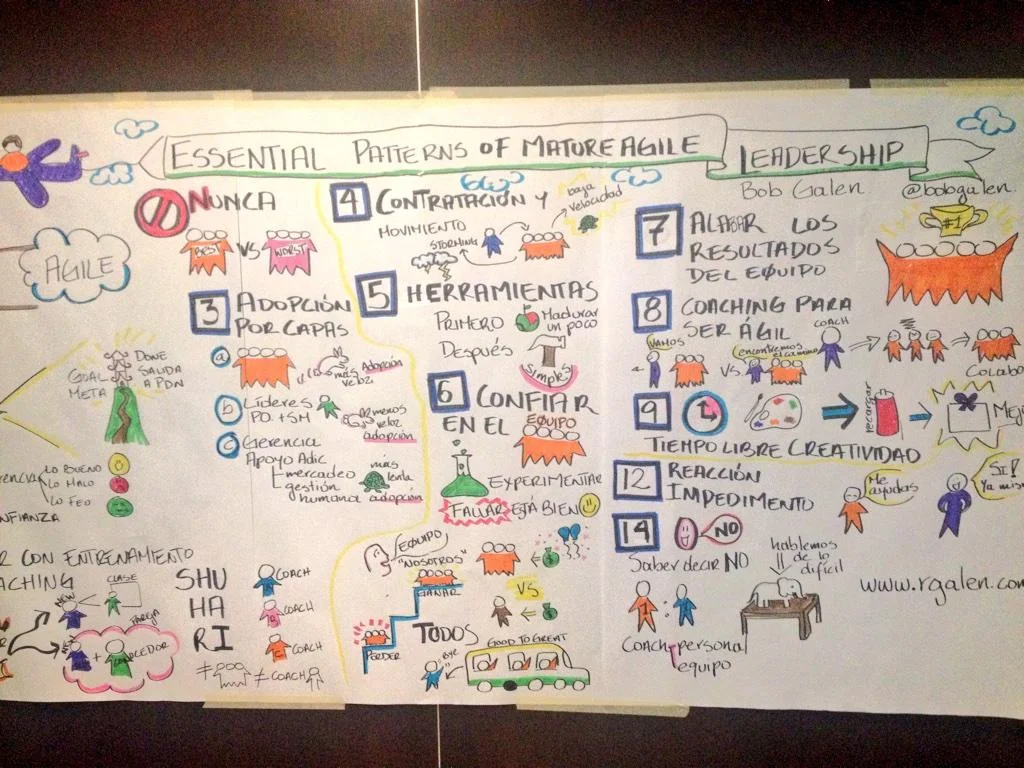 ESSENTIAL PATTERNS OF MATURE AGILE LEADERSHIP
Bob Galen @bobgalen.
AGILE
GOAL
META
DONE
SALIDA
A PDN
LO BUENO
LO MALO
LO FEO
NUNCA
BEST VS WORST
3 ADOPCIÓN
POR CAPAS
a
más
veloz
Adopción
b Líderes
PO. + SM
menos
veloz
adopción
c Gerencia
Apoyo Adic
mercadeo
gestión
humana
más
lenta
adopción
4 CONTRATACIÓN Y
MOVIMIENTO
STORMING
baja
velocidad
5 HERRAMIENTAS
PRIMERO
Madurar
un poco
Después
simples
6 CONFIAR
EN EL EQUIPO
EXPERIMENTAR
FALLAR ESTÁ BIEN
EQUIPO
"NOSOTROS"
GANAR
VS
PERDER
TODOS
BYE
GOOD TO GREAT
7 ALABAR LOS
RESULTADOS
DEL EQUIPO
#1
8 COACHING PARA
SER ÁGIL
VAMOS
VS
encontremos
el camino
COACH
9
recargar
TIEMPO LIBRE CREATIVIDAD
12 REACCIÓN
IMPEDIMENTO
Me
ayudas
SI!
14 NO
Saber decir NO
hablemos
de lo
difícil
Coach personal
equipo
www.rgalen.com
CON ENTRENAMIENTO
NEW
CLASE
PAREJA
NEW
+
SHU
HA
RI
COACH
COACH
COACH
≠
≠ COACH